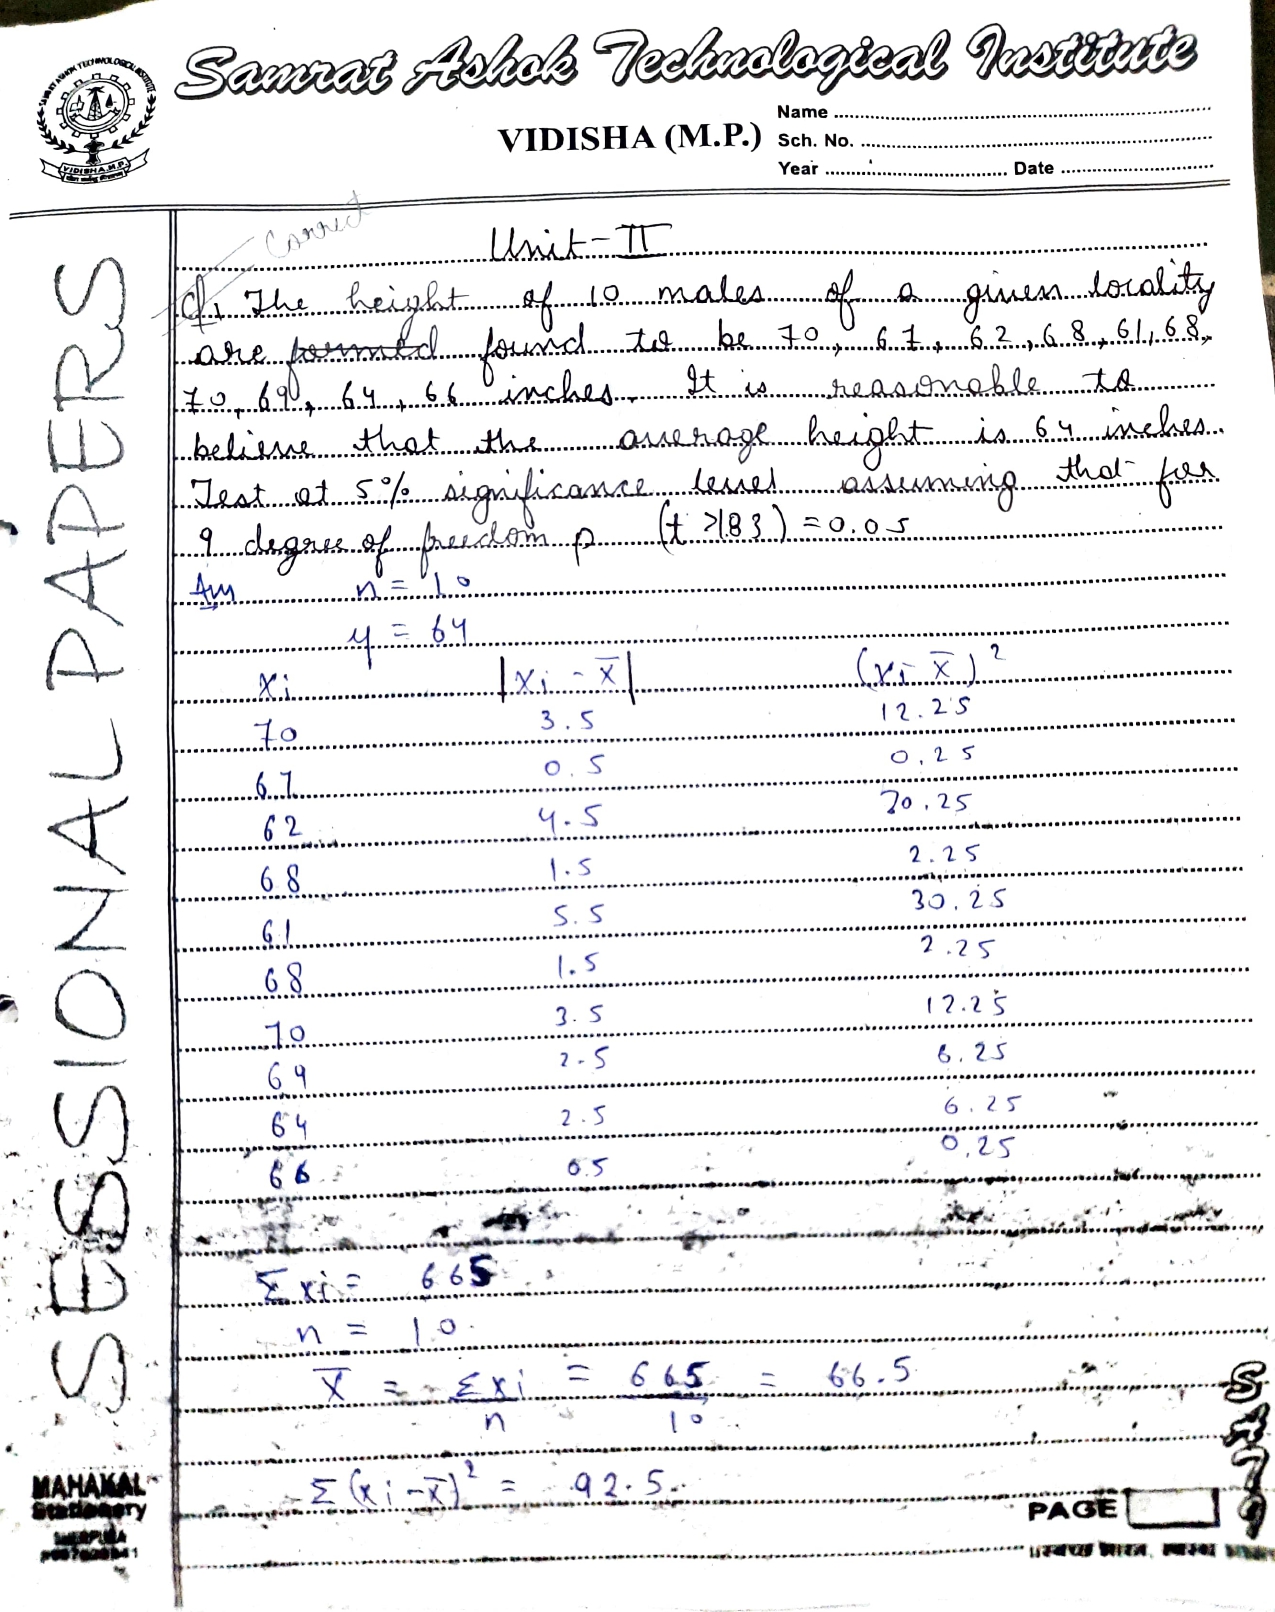 Samrat Ashok Technological Institute
VIDISHA (M.P.)
Name
Sch. No.
Year Date
VIDISHA M.P.
SESSIONAL PAPERS
Correct
Unit-II
Q1 The height of 10 males of a given locality
are formed found to be 70, 67, 62, 68, 61, 68,
70, 69, 64, 66 inches. It is reasonable to
believe that the average height is 64 inches.
Test at 5% significance level assuming that for
9 degree of freedom p (t >1.83) = 0.05
Ans n = 10
μ = 64
xi |xi - x̄| (xi - x̄)²
70 3.5 12.25
67 0.5 0.25
62 4.5 20.25
68 1.5 2.25
61 5.5 30.25
68 1.5 2.25
70 3.5 12.25
69 2.5 6.25
64 2.5 6.25
66 0.5 0.25
Σxi = 665
n = 10
x̄ = Σxi/n = 665/10 = 66.5
Σ(xi-x̄)² = 92.5
MAHAKAL
Stationery
PAGE